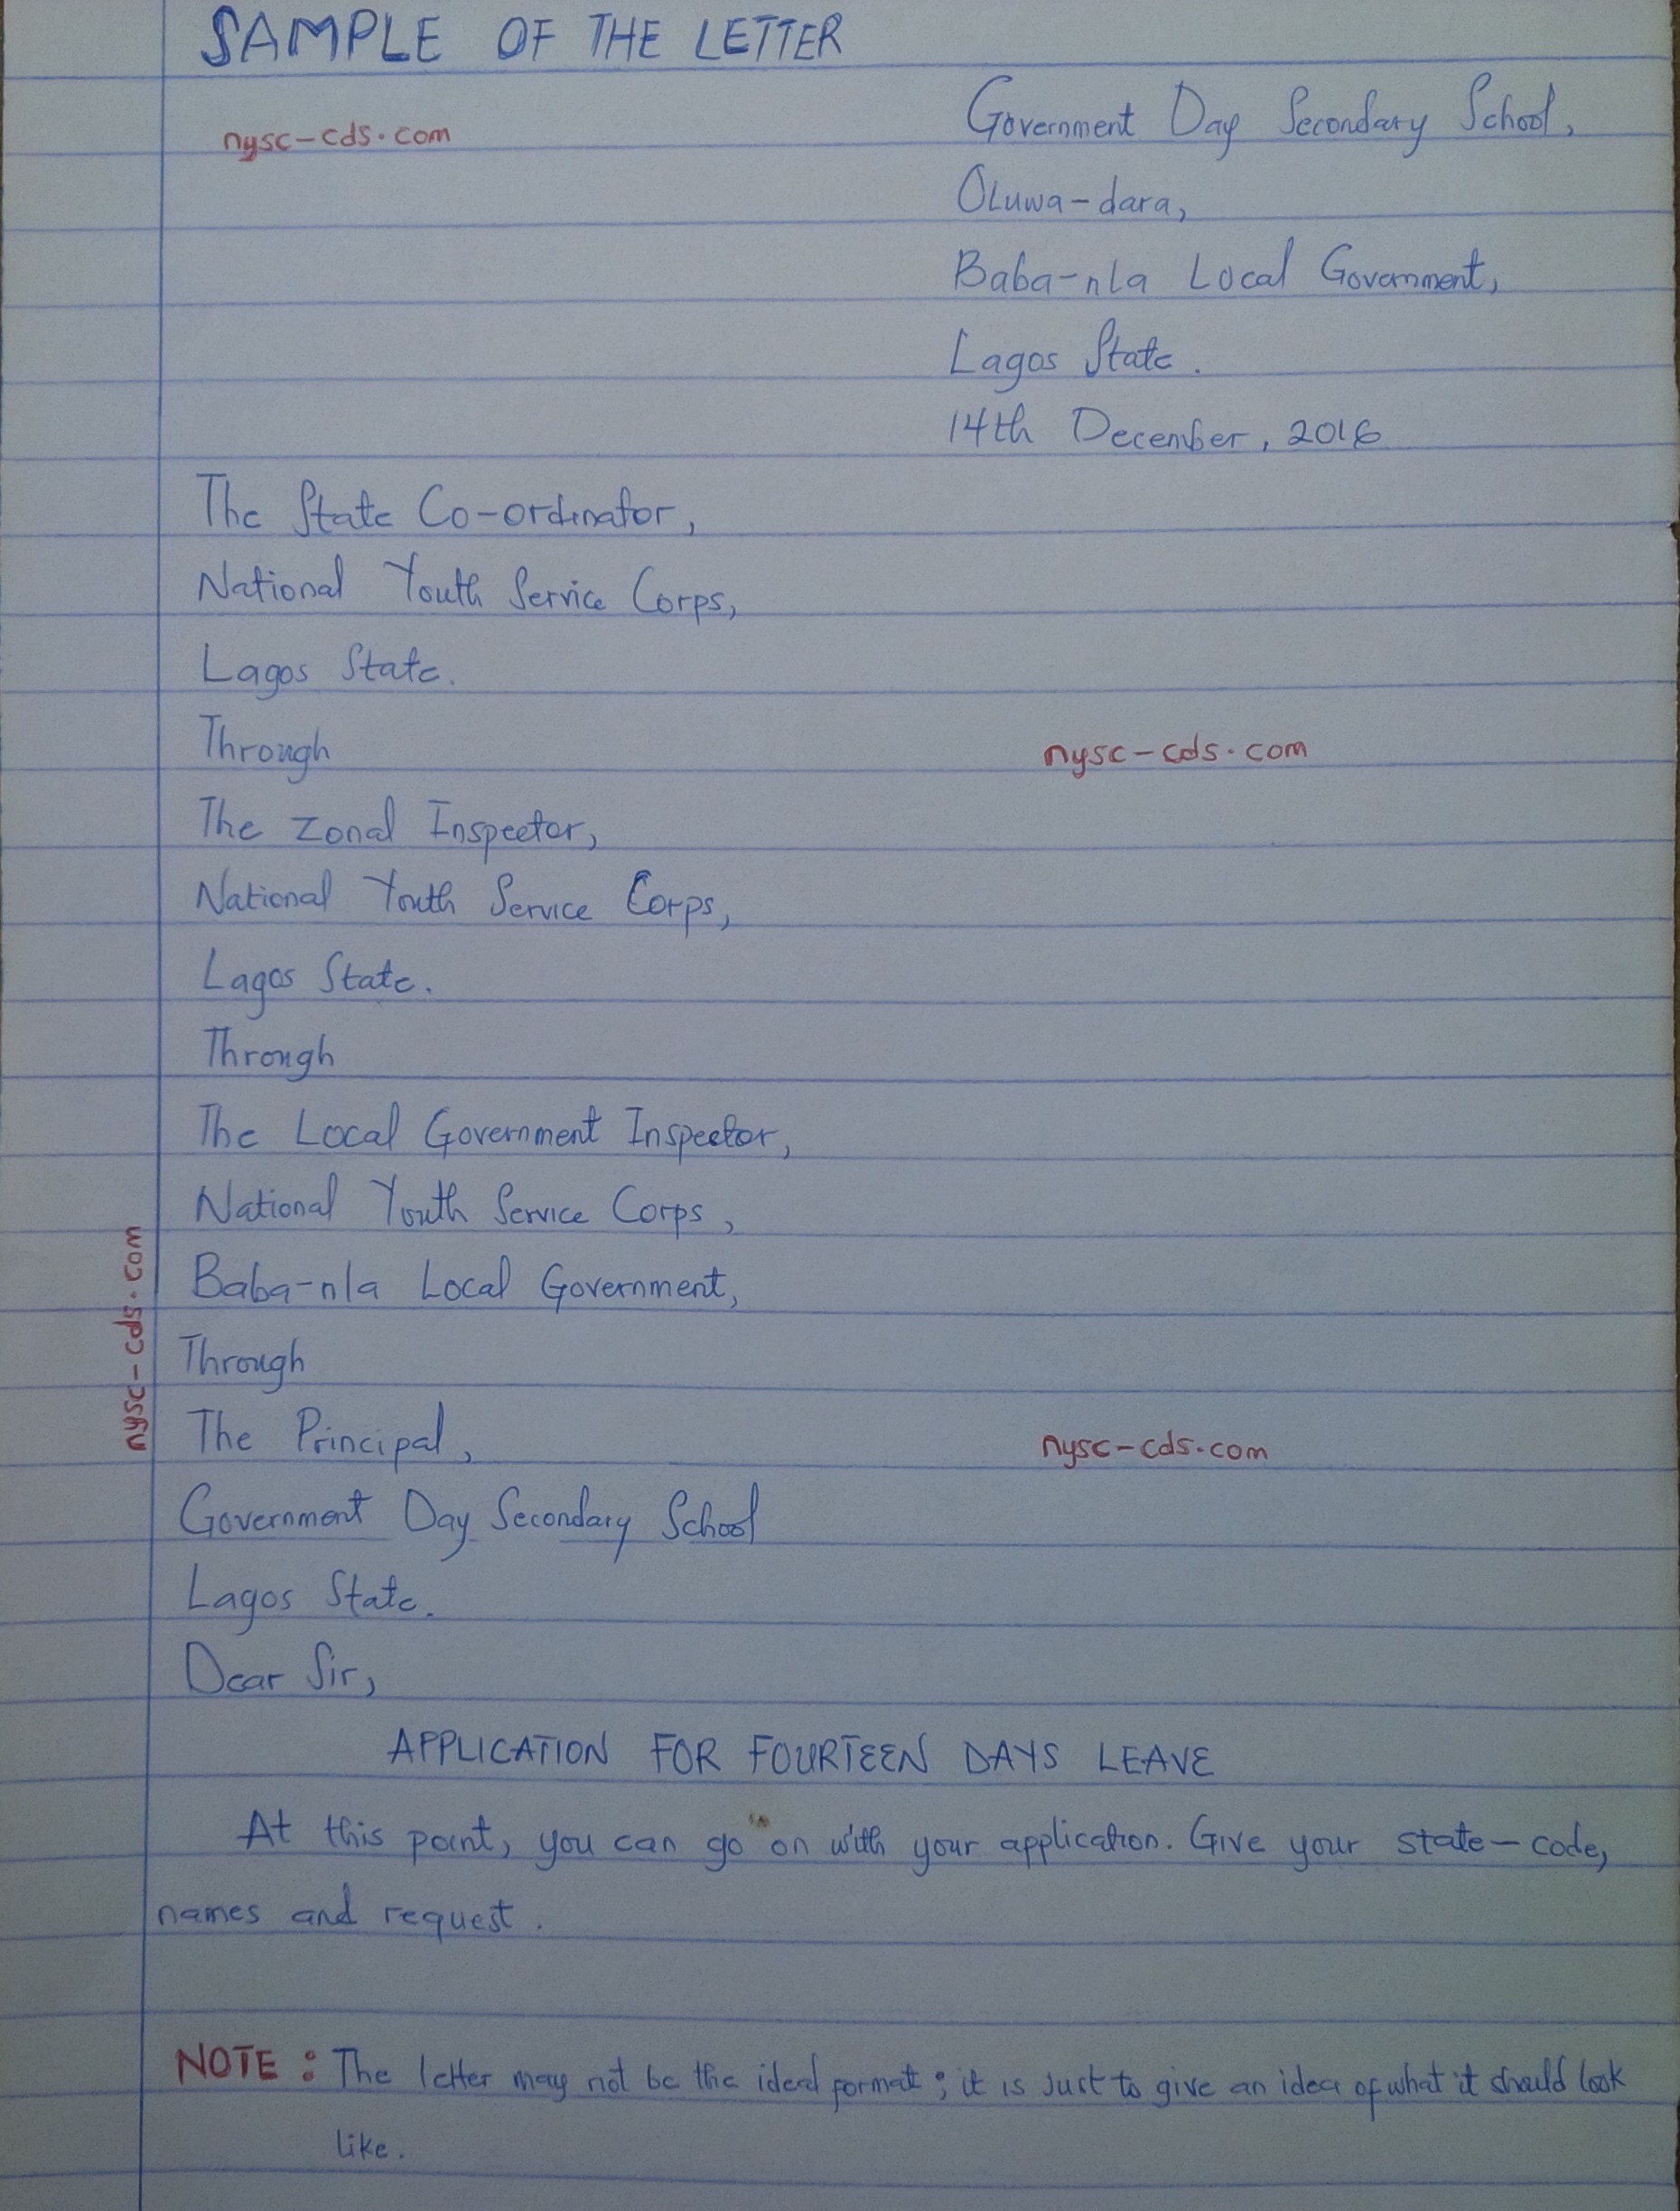 SAMPLE OF THE LETTER
nysc-cds.com
Government Day Secondary School,
Oluwa-dara,
Baba-nla Local Government,
Lagos State.
14th December, 2016
The State Co-ordinator,
National Youth Service Corps,
Lagos State.
Through
nysc-cds.com
The Zonal Inspector,
National Youth Service Corps,
Lagos State.
Through
The Local Government Inspector,
National Youth Service Corps,
Baba-nla Local Government,
nysc-cds.com
Through
The Principal,
nysc-cds.com
Government Day Secondary School
Lagos State.
Dear Sir,
APPLICATION FOR FOURTEEN DAYS LEAVE
At this point, you can go on with your application. Give your state-code,
names and request.
NOTE: The letter may not be the ideal format; it is just to give an idea of what it should look
like.